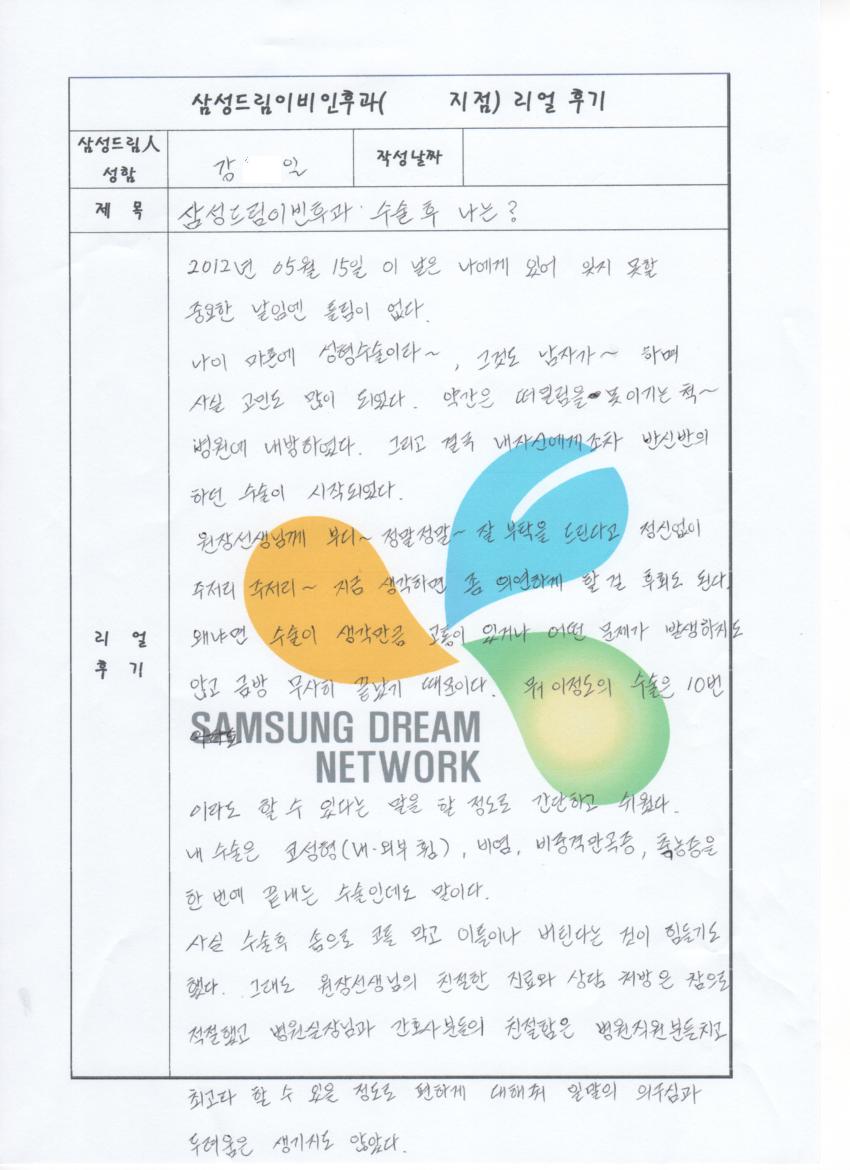 삼성드림이비인후과(      지점) 리얼 후기
삼성드림人
성함
강     일
작성날짜
제 목
삼성드림이빈후과 수술 후 나는?
2012년 05월 15일 이 날은 나에게 있어 잊지 못할
중요한 날임엔 틀림이 없다.
나이 마흔에 성형수술이라~, 그것도 남자가~ 하며
사실 고민도 많이 되었다. 약간은 떠밀림을 못이기는 척~
병원에 내방하였다. 그리고 결국 내자신에게조차 반신반의
하던 수술이 시작되었다.
원장선생님께 부디~ 정말정말~ 잘 부탁을 드린다고 정신없이
주저리 주저리~ 지금 생각하면 좀 의연하게 할 걸 후회도 된다.
리 얼
후 기
왜냐면 수술이 생각만큼 고통이 있거나 어떤 문제가 발생하지도
않고 금방 무사히 끝났기 때문이다. 뭐 이정도의 수술은 10번
SAMSUNG DREAM
NETWORK
이라도 할 수 있다는 말을 할 정도로 간단하고 쉬웠다.
내 수술은 코성형(내·외부 휨), 비염, 비중격만곡증, 축농증을
한 번에 끝내는 수술인데도 말이다.
사실 수술후 솜으로 코를 막고 이틀이나 버틴다는 것이 힘들기도
했다. 그래도 원장선생님의 친절한 진료와 상담 처방은 참으로
적절했고 병원실장님과 간호사분들의 친절함은 병원직원분들치고
최고다 할 수 있을 정도로 편하게 대해줘 일말의 의구심과
두려움은 생기지도 않았다.